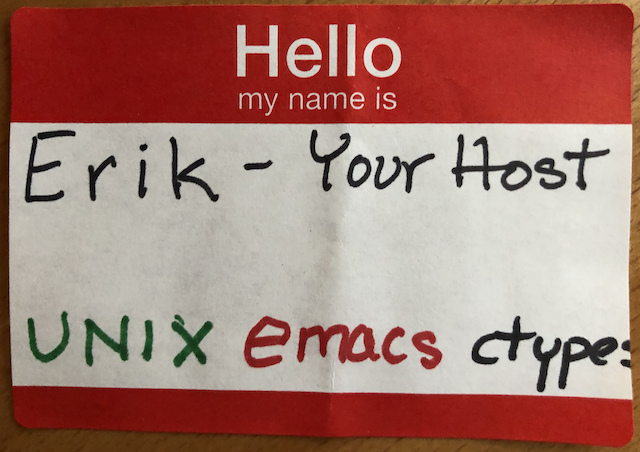 Hello
my name is
Erik - Your Host
UNIX emacs ctypes